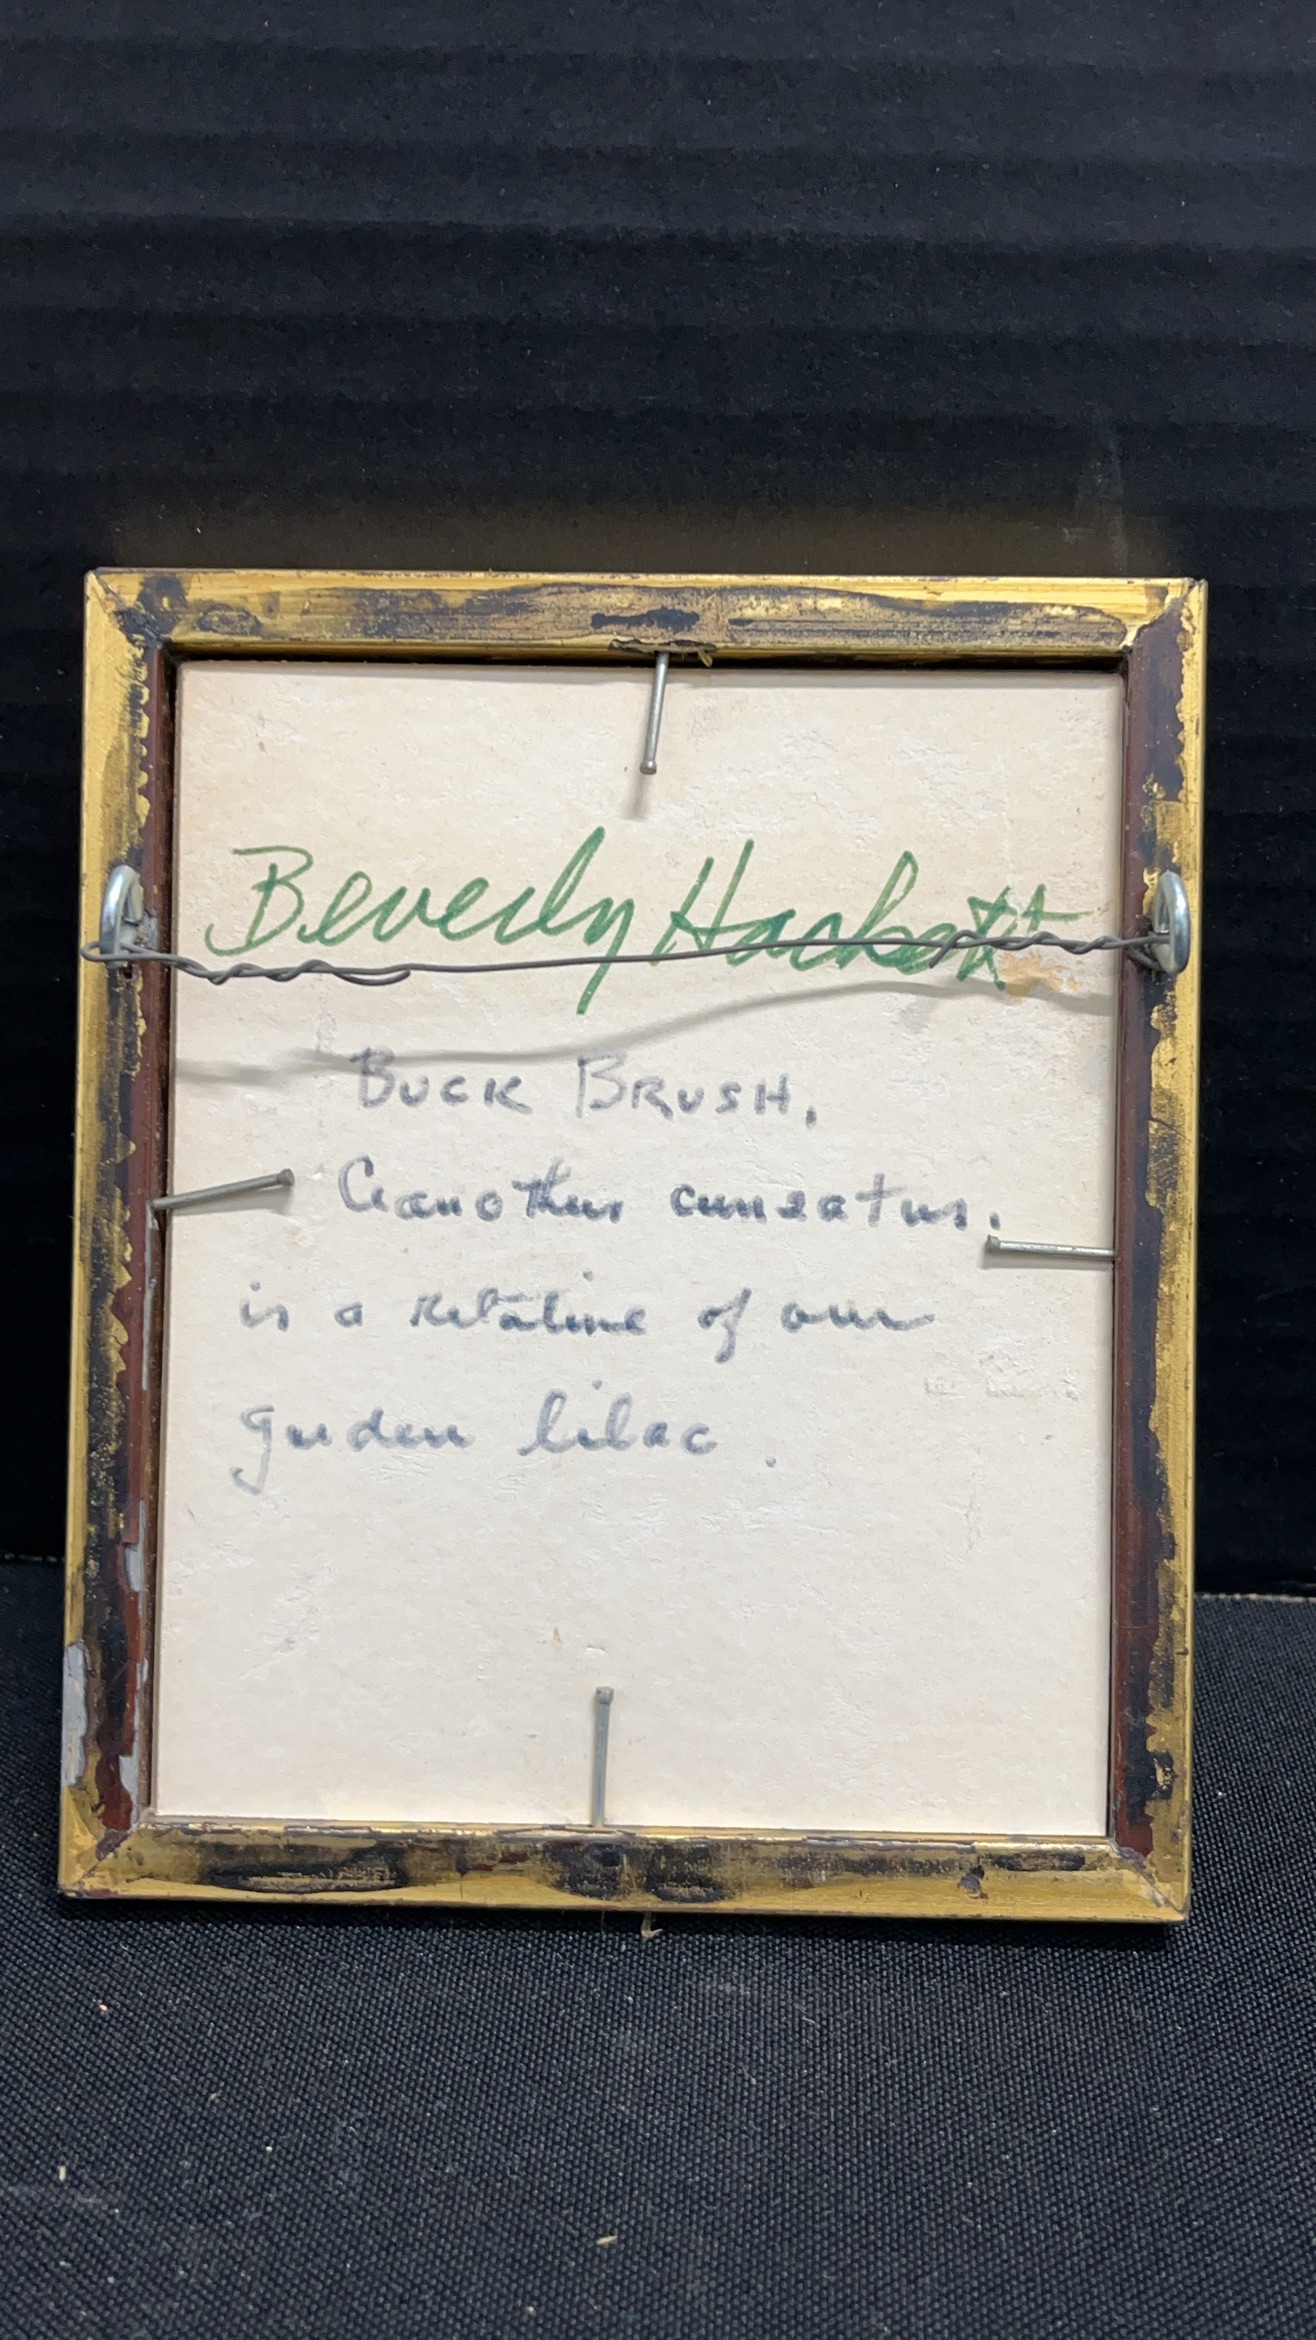 Beverly Hackett
BUCK BRUSH,
Ceanothus cuneatus.
is a relative of our
garden lilac.